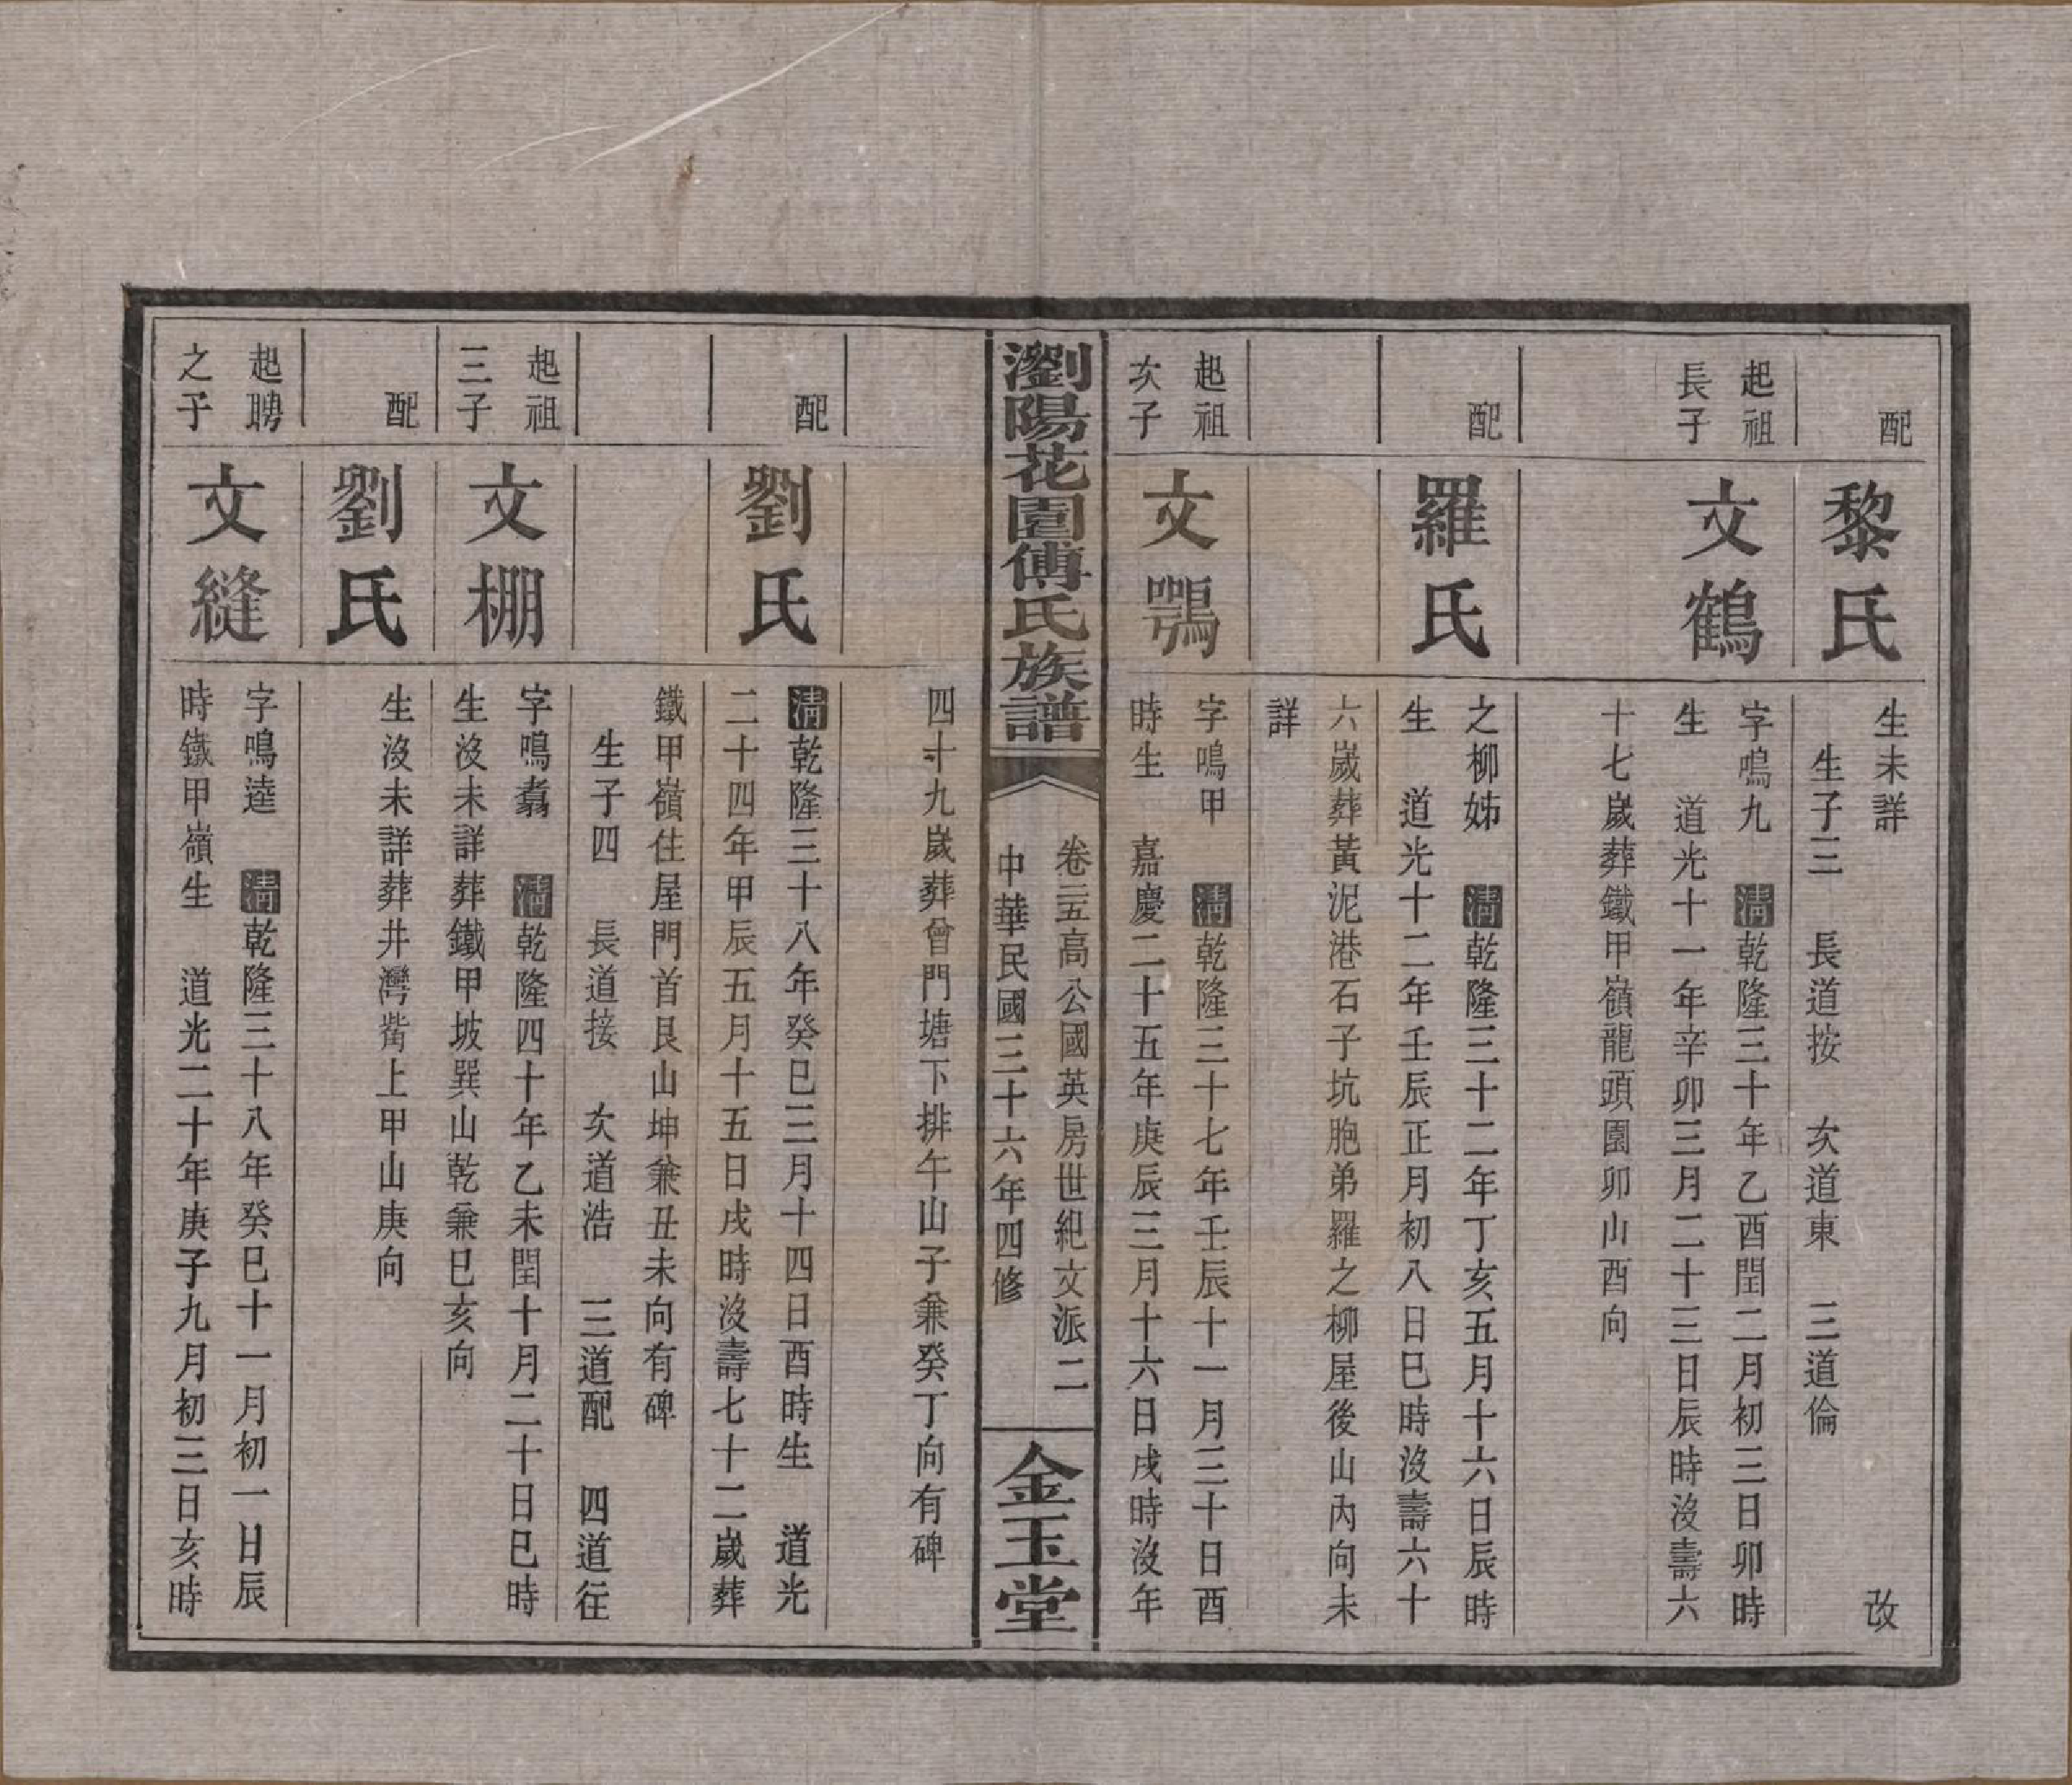 配
黎氏
生未詳　改
生子三　長道按　次道東　三道倫
起祖
長子
文鶴
字鳴九　清乾隆三十年乙酉閏二月初三日卯時
生　道光十一年辛卯三月二十三日辰時沒壽六
十七嵗葬鐵甲嶺龍頭園卯山酉向
配
羅氏
之柳姊　清乾隆三十二年丁亥五月十六日辰時
生　道光十二年壬辰正月初八日巳時沒壽六十
六嵗葬黃泥港石子坑胞弟羅之柳屋後山內向未
詳
起祖
次子
文鶚
字鳴甲　清乾隆三十七年壬辰十一月三十日酉
時生　嘉慶二十五年庚辰三月十六日戌時沒年
瀏陽花園傅氏族譜
卷三五高公國英房世紀文派二
中華民國三十六年四修
金玉堂
四十九嵗葬曾門塘下排午山子兼癸丁向有碑
配
劉氏
清乾隆三十八年癸巳三月十四日酉時生　道光
二十四年甲辰五月十五日戌時沒壽七十二嵗葬
鐵甲嶺住屋門首艮山坤兼丑未向有碑
生子四　長道接　次道浩　三道配　四道任
起祖
三子
文棚
字鳴翥　清乾隆四十年乙未閏十月二十日巳時
生沒未詳葬鐵甲坡巽山乾兼巳亥向
配
劉氏
生沒未詳葬井灣觜上甲山庚向
起聘
之子
文縫
字鳴逵　清乾隆三十八年癸巳十一月初一日辰
時鐵甲嶺生　道光二十年庚子九月初三日亥時